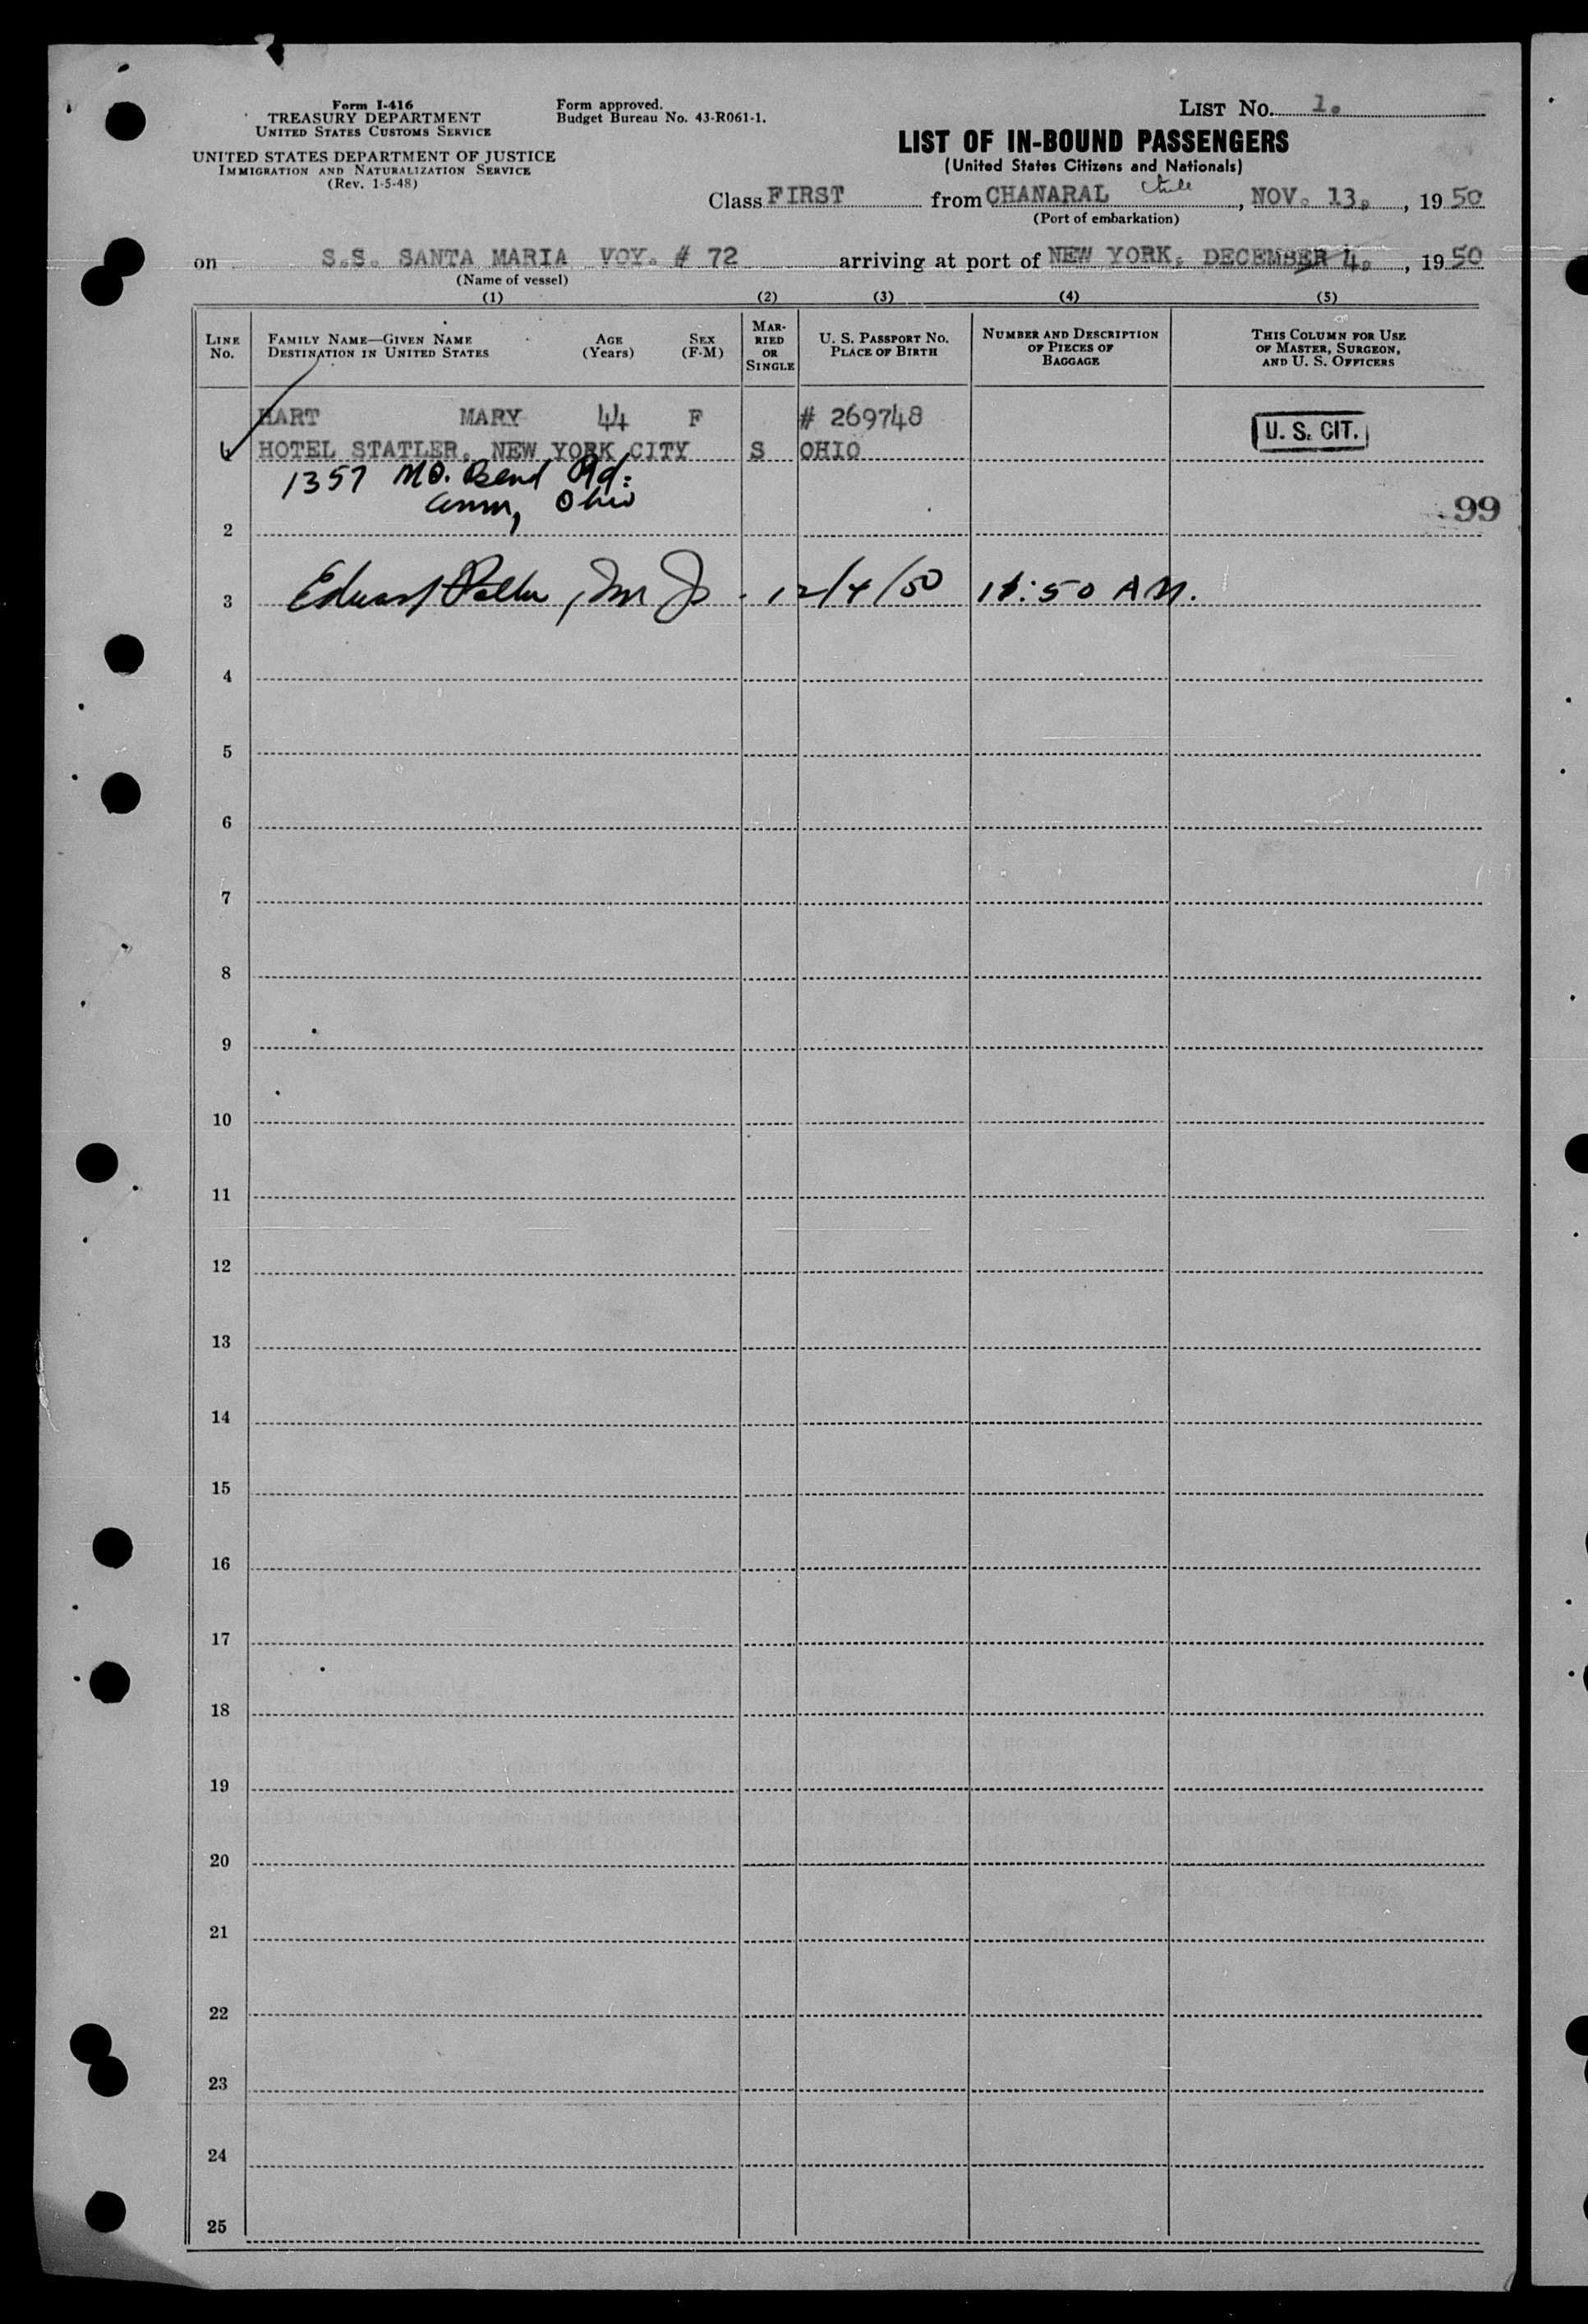 Form I-416
TREASURY DEPARTMENT
UNITED STATES CUSTOMS SERVICE
UNITED STATES DEPARTMENT OF JUSTICE
IMMIGRATION AND NATURALIZATION SERVICE
(Rev. 1-5-48)
Form approved.
Budget Bureau No. 43-R061-1.
LIST No. 1.
LIST OF IN-BOUND PASSENGERS
(United States Citizens and Nationals)
Class FIRST from CHANARAL Chile, NOV. 13., 1950
(Port of embarkation)
on S.S. SANTA MARIA VOY. # 72 arriving at port of NEW YORK, DECEMBER 4., 1950
(Name of vessel)
(1) (2) (3) (4) (5)
LINE No.
FAMILY NAME—GIVEN NAME
DESTINATION IN UNITED STATES
AGE (Years)
SEX (F-M)
MARRIED OR SINGLE
U. S. PASSPORT No.
PLACE OF BIRTH
NUMBER AND DESCRIPTION
OF PIECES OF
BAGGAGE
THIS COLUMN FOR USE
OF MASTER, SURGEON,
AND U. S. OFFICERS
HART MARY 44 F # 269748
HOTEL STATLER, NEW YORK CITY S OHIO
U. S. CIT.
1357 Bend Rd.
Ohio
99
2
3 Edward 12/4/50 11:50 AM.
4
5
6
7
8
9
10
11
12
13
14
15
16
17
18
19
20
21
22
23
24
25